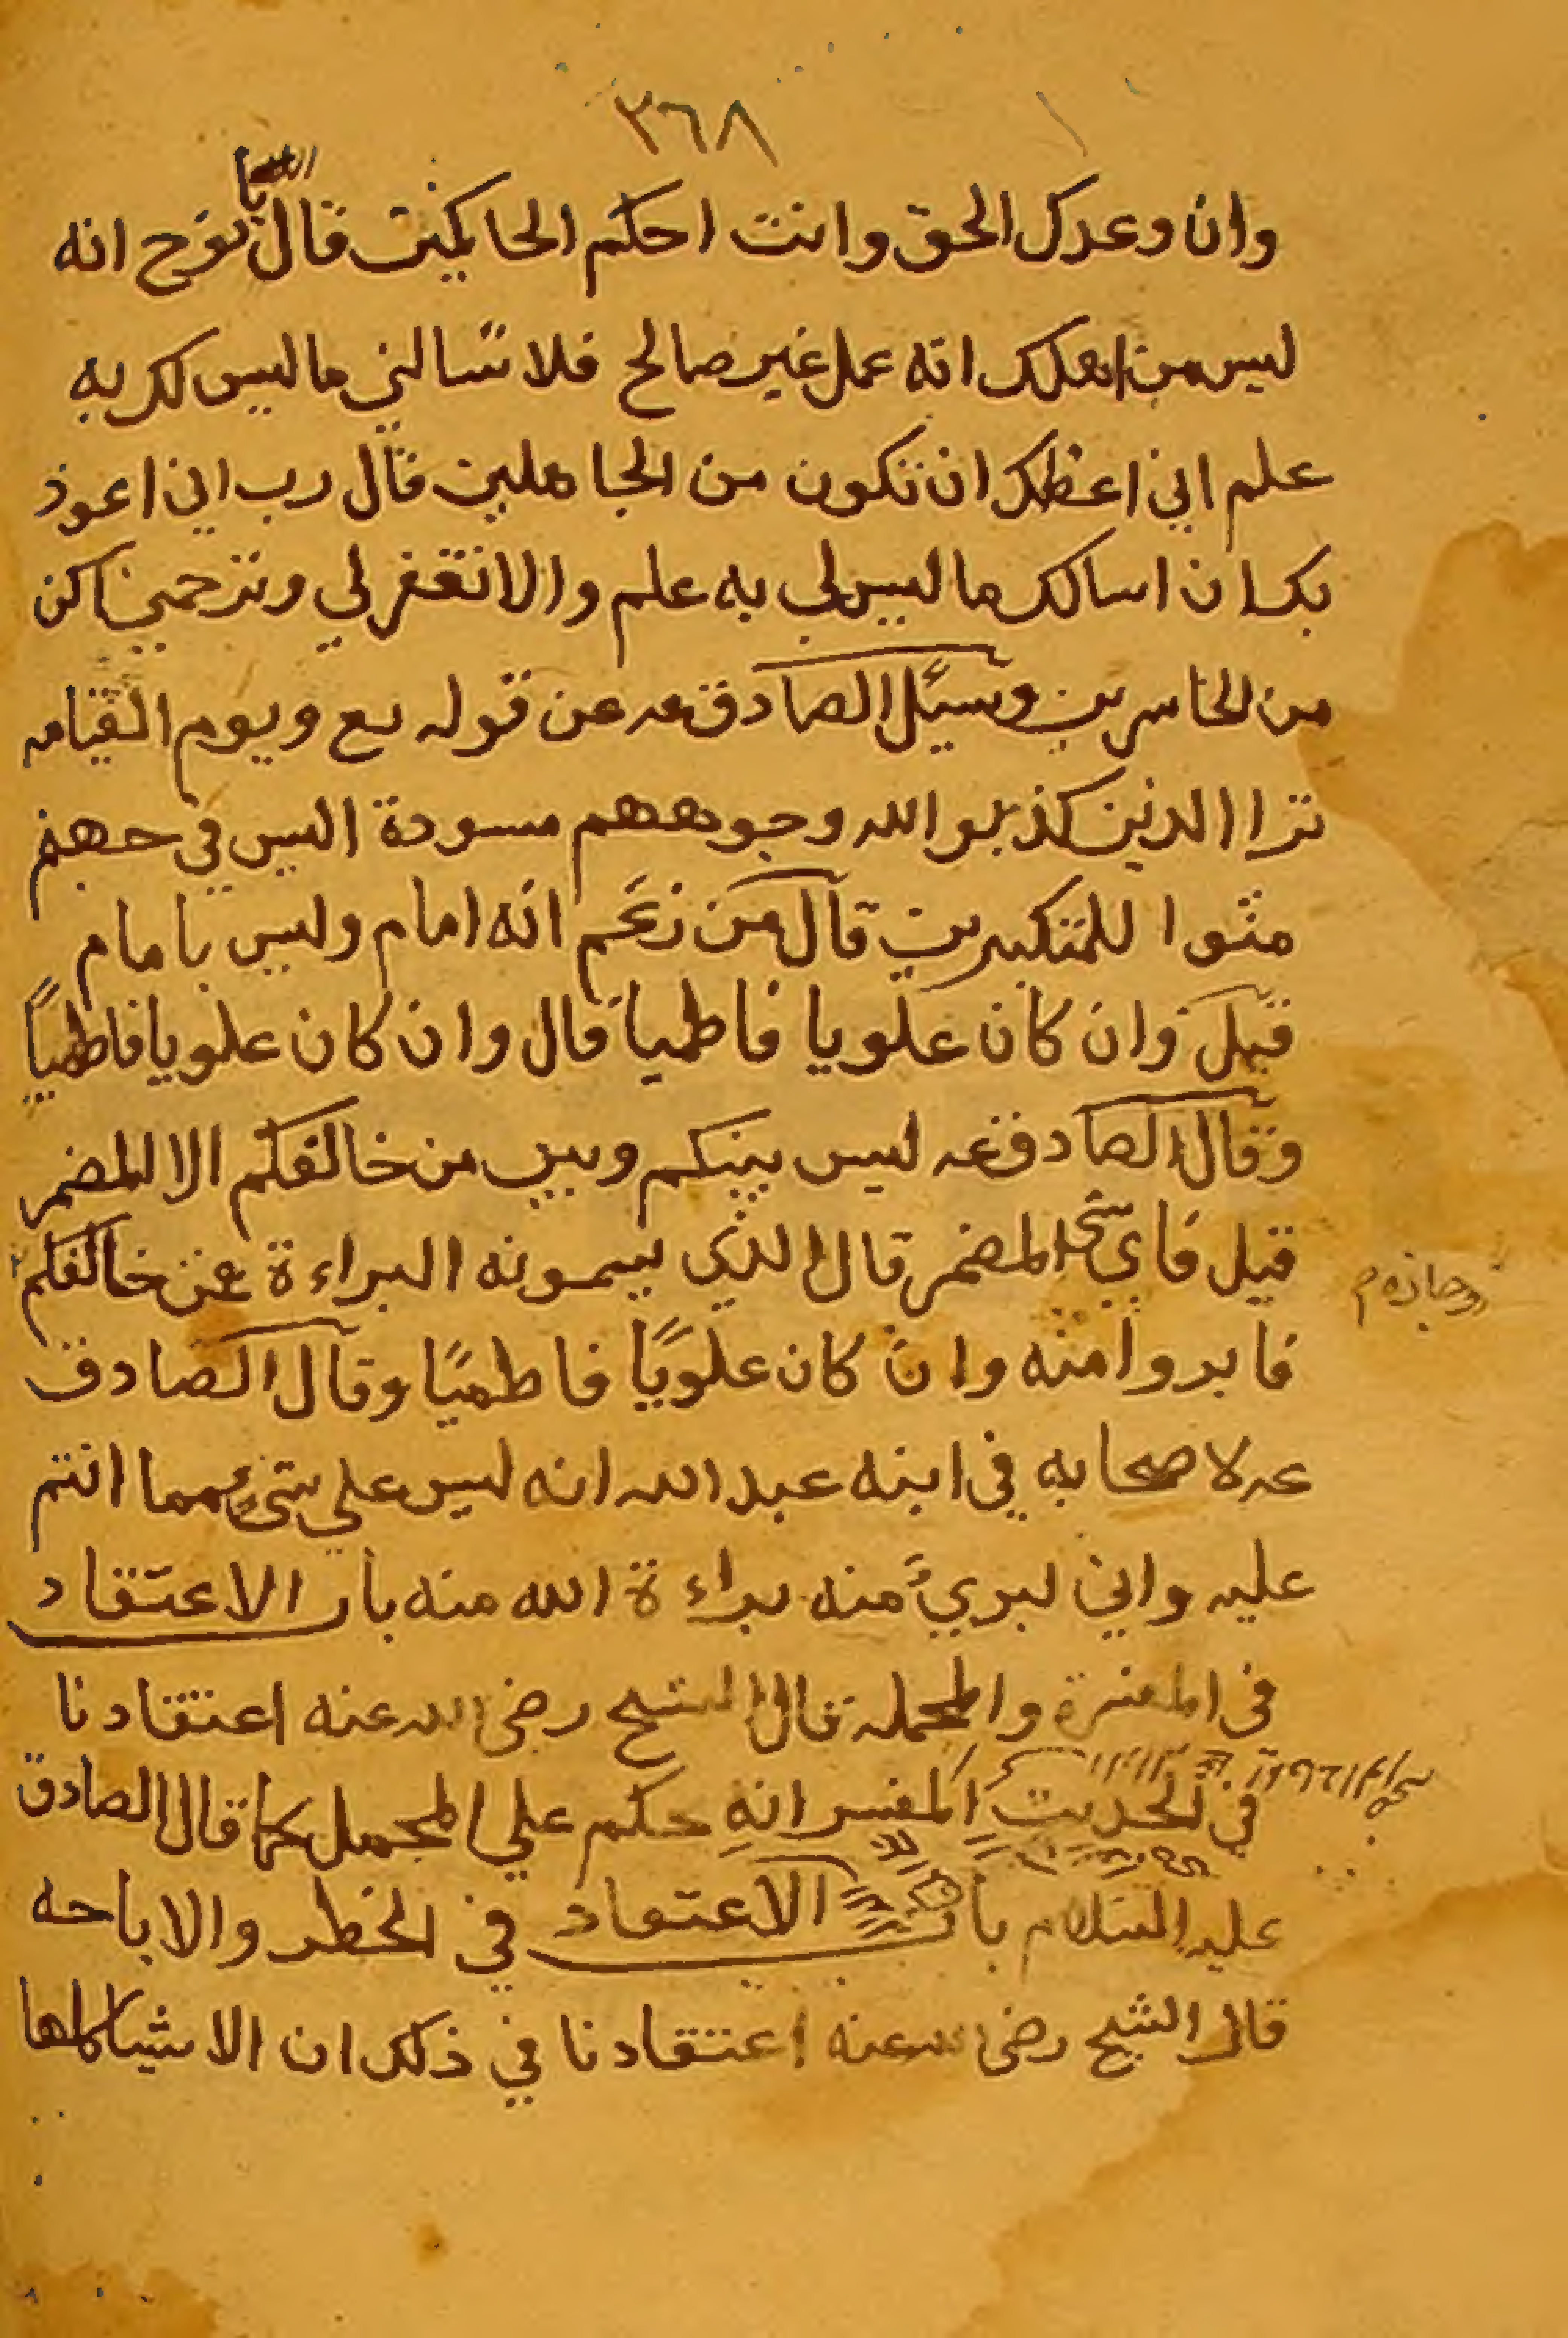 ٣٦٨
وان وعدك الحق وانت احكم الحاكمين قال يا نوح انه
ليس من اهلك انه عمل غير صالح فلا تسالني ما ليس لك به
علم اني اعظك ان تكون من الجاهلين قال رب اني اعوذ
بك ان اسالك ما ليس لي به علم والا تغفر لي وترحمني اكن
من الخاسرين وسئل الصادق عه عن قوله تع ويوم القيامه
ترا الذين كذبوا الله وجوههم مسودة اليس في جهنم
مثوا للمتكبرين قال من زعم انه امام وليس بامام
قيل وان كان علويا فاطميا قال وان كان علويا فاطمياً
وقال الصادق عه ليس بينكم وبين من خالفكم الا المضمر
قيل فاي شئ المضمر قال الذي يسمونه البراءة عن خالفكم
وجازه م
فابروا منه وان كان علويًا فاطميًا وقال الصادق
عه لاصحابه في ابنه عبد الله انه ليس على شئ مما انتم
عليه واني لبريء منه براءة الله منه باب الاعتقاد
في المفسرة والمجمله قال الشيخ رضي الله عنه اعتقادنا
في الحديث المفسر انه حكم علي المجمل كما قال الصادق
عليه السلام باب الاعتقاد في الخطر والاباحه
قال الشيخ رضي الله عنه اعتقادنا في ذلك ان الاشيا كلها